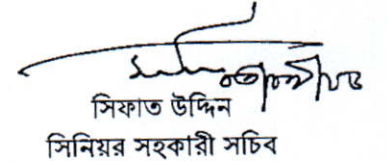 সিফাত উদ্দিন
সিনিয়র সহকারী সচিব